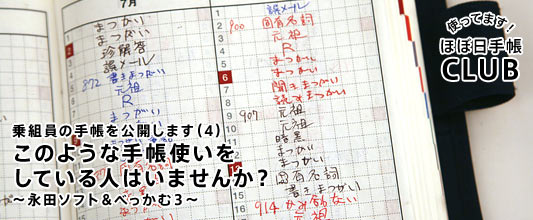 使ってます!
ほぼ日手帳
CLUB
7月
まつがい
まつがい
珍解答
誤メール
872 書きまつがい
元祖
R
まつがい
誤メール
900 固有名詞
元祖
R
まつがい
まつがい
聞きまつがい
読みまつがい
元祖
907 元祖
元祖
暗黒
まつがい
固有名詞
書きまつがい
914
元祖
乗組員の手帳を公開します(4)
このような手帳使いを
している人はいませんか?
〜永田ソフト&べっかむ3〜